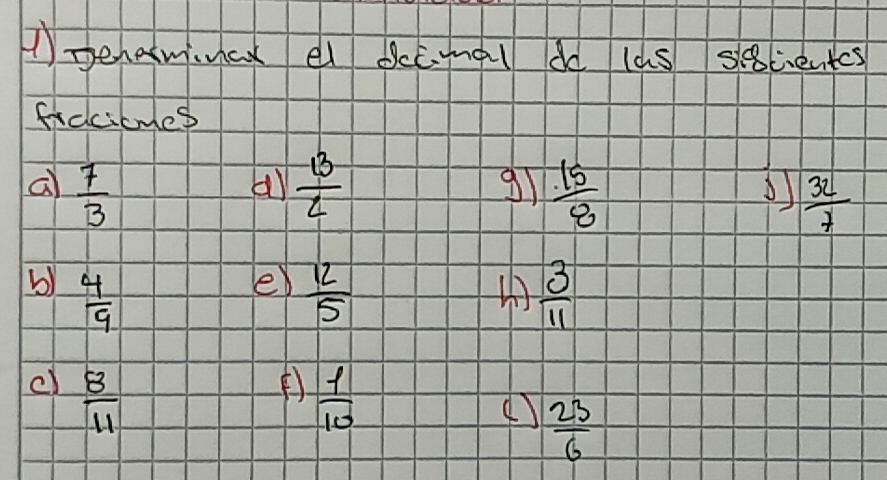 1) Determinar el decimal de las siguientes
fracciones
a) 7/3 d) 13/2 g) 15/8 j) 32/7
b) 4/9 e) 12/5 h) 3/11
c) 8/11 f) 1/10 i) 23/6